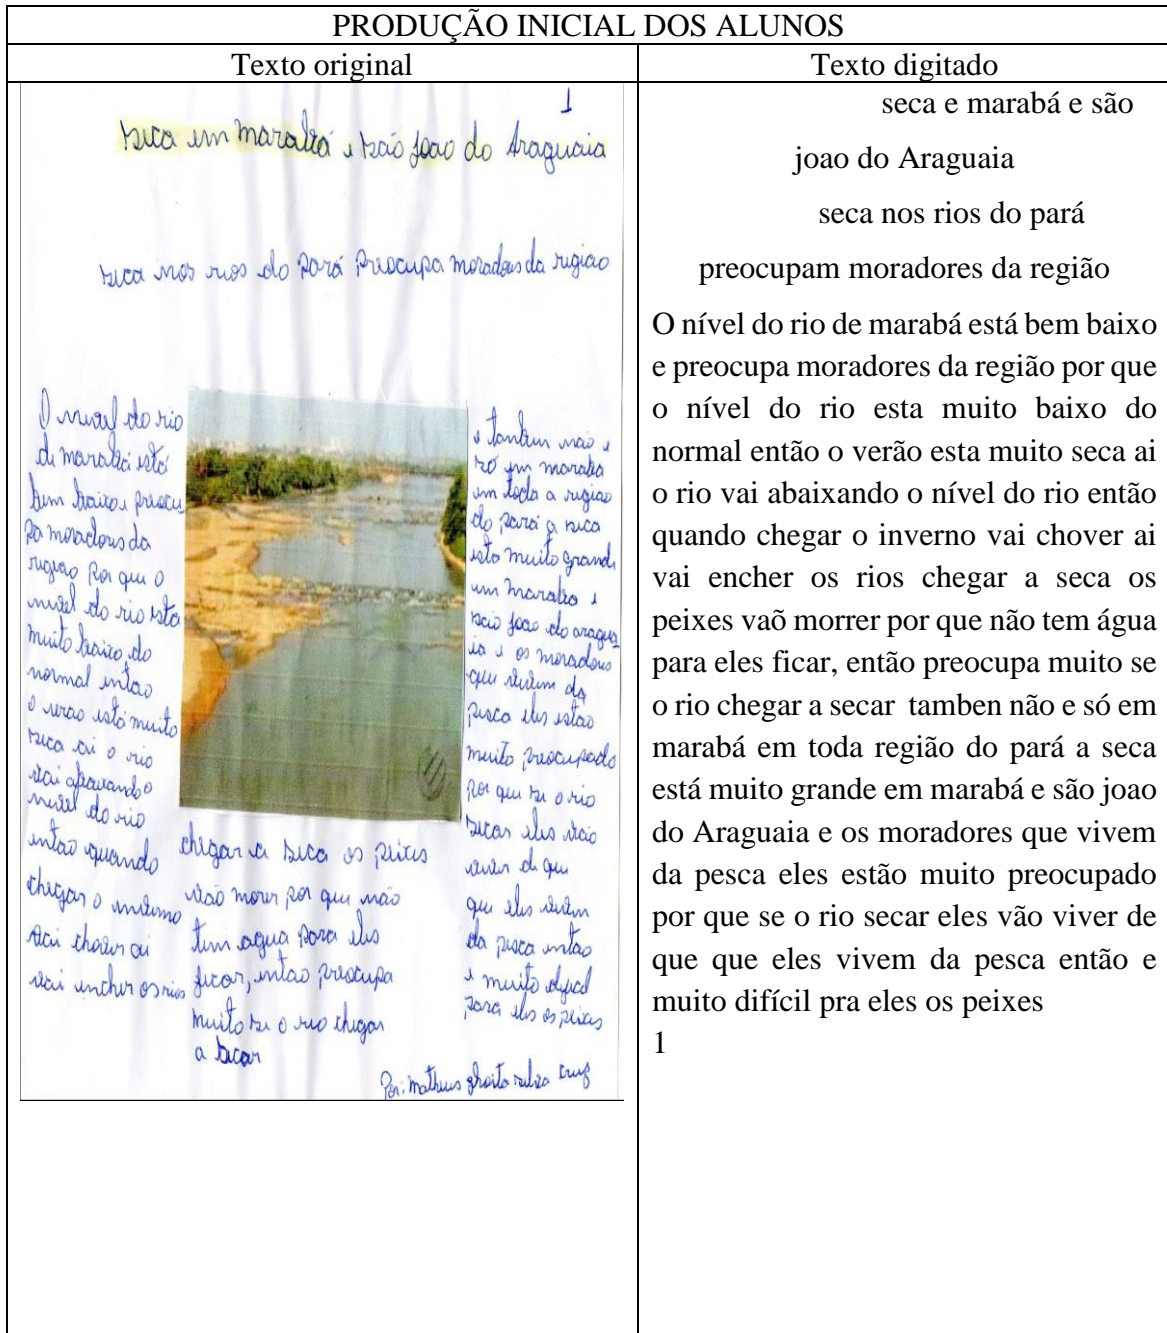 PRODUÇÃO INICIAL DOS ALUNOS
Texto original
Texto digitado
1
seca em marabá e são joao do Araguaia
seca nos rios do pará preocupa moradores da região
O nivel do rio
de marabá está
bem baixo e preocu
pa moradores da
região por que o
nivel do rio esta
muito baixo do
normal entao
o verao está muito
seca ai o rio
vai abaixando o
nivel do rio
entao quando
chegar o inverno
vai chover ai
vai encher os rios
chegar a seca os peixes
vão morer por que não
tem agua para eles
ficar, entao preocupa
muito se o rio chegar
a secar
e tanben não e
só em maraba
em toda a região
do pará a seca
esta muito grande
em maraba e
são joao do aragua
ia e os moradores
que vivem da
pesca eles estao
muito preocupado
por que se o rio
secar eles vão
viver de que
que eles vivem
da pesca entao
e muito dificil
para eles os peixes
Por: matheus
cruz
seca e marabá e são
joao do Araguaia
seca nos rios do pará
preocupam moradores da região
O nível do rio de marabá está bem baixo
e preocupa moradores da região por que
o nível do rio esta muito baixo do
normal então o verão esta muito seca ai
o rio vai abaixando o nível do rio então
quando chegar o inverno vai chover ai
vai encher os rios chegar a seca os
peixes vaõ morrer por que não tem água
para eles ficar, então preocupa muito se
o rio chegar a secar tamben não e só em
marabá em toda região do pará a seca
está muito grande em marabá e são joao
do Araguaia e os moradores que vivem
da pesca eles estão muito preocupado
por que se o rio secar eles vão viver de
que que eles vivem da pesca então e
muito difícil pra eles os peixes
1